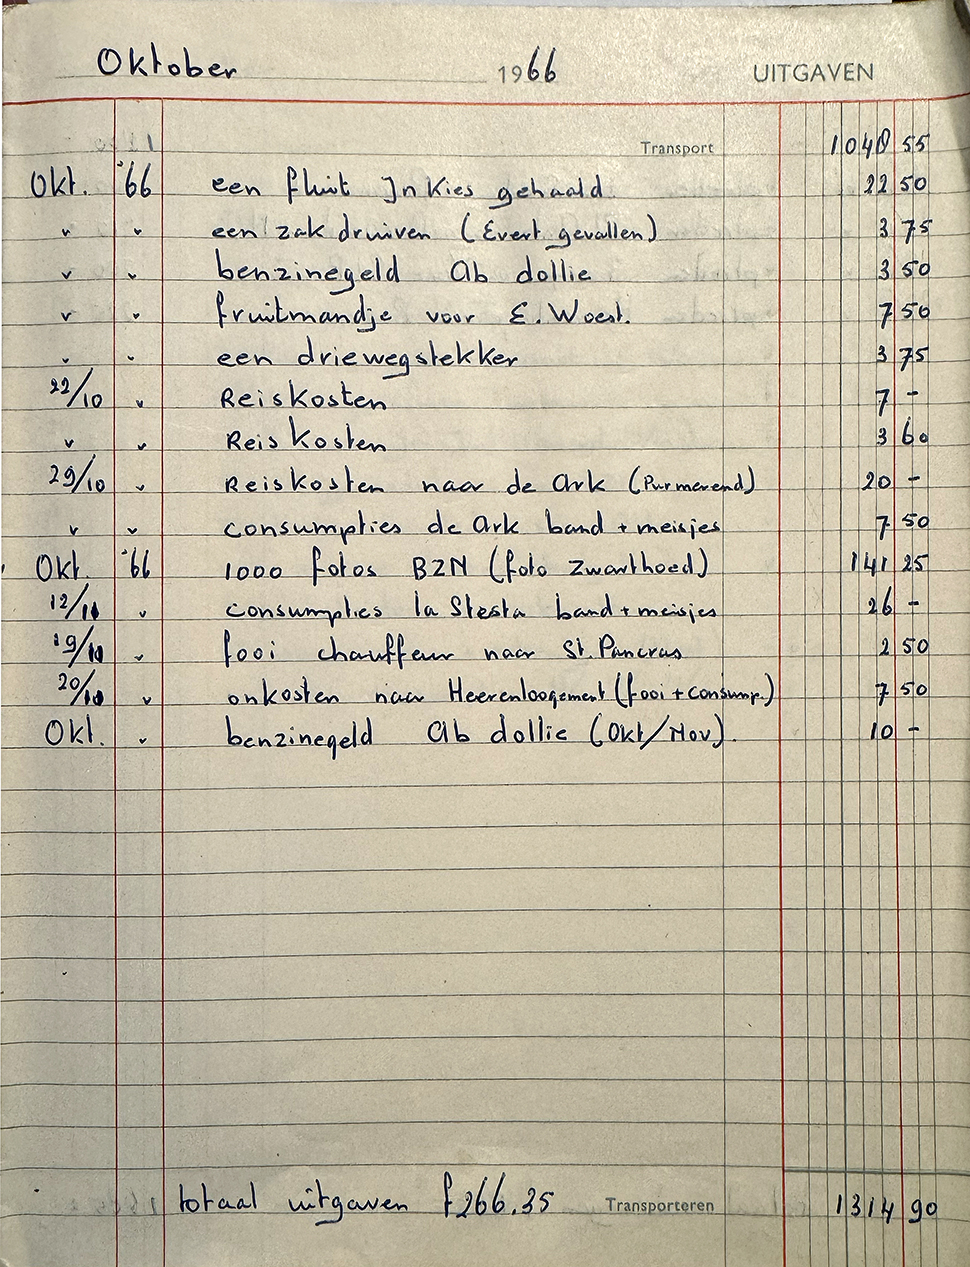 Oktober 1966 UITGAVEN
Transport 1048 55
Okt. '66 een fluit Jn Kies gehaald 22 50
" " een zak druiven (Evert gevallen) 3 75
" " benzinegeld Ab dollie 3 50
" " fruitmandje voor E. Woest. 7 50
" " een driewegstekker 3 75
22/10 " Reiskosten 7 -
" " Reis kosten 3 60
29/10 " Reiskosten naar de Ark (Purmerend) 20 -
" " consumpties de Ark band + meisjes 7 50
Okt. '66 1000 fotos BZN (foto Zwarthoed) 141 25
12/10 " consumpties la Siesta band + meisjes 26 -
19/10 " fooi chauffeur naar St. Pancras 2 50
20/10 " onkosten naar Heerenloogement (fooi + consump.) 7 50
Okt. " benzinegeld Ab dollie (Okt/Nov). 10 -
totaal uitgaven f 266.35 Transporteren 1314 90